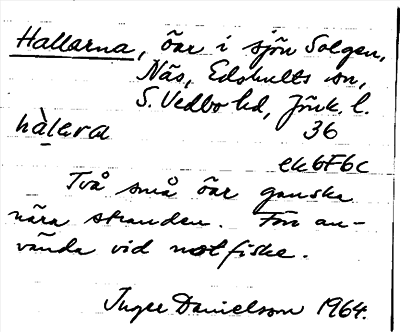 Hallarna, öar i sjön Solgen,
Näs, Edshults sn,
S. Vedbo hd, Jönk. l.
hàlara 36
ek6F6c
Två små öar ganska
nära stranden. Förr an-
vända vid notfiske.
Inger Danielsson 1964.